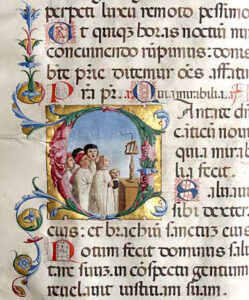 perpeti luxu remoto pessimo
Ut quiqꝫ horas noctiũ nũ
concinendo rumpimus: donis
bt̃e pr̃ie ditemur oẽs affati
Pm̃ pr̃. Quia mirabilia.
Cantate d
canticũ nouũ
quia mira
bilia fecit.
Saluauit
sibi dexter
eius: et brachium sanctũ eius
Notum fecit dominus salu
tare suuz. in cõspectu gentium
reuelauit iustitiam suam